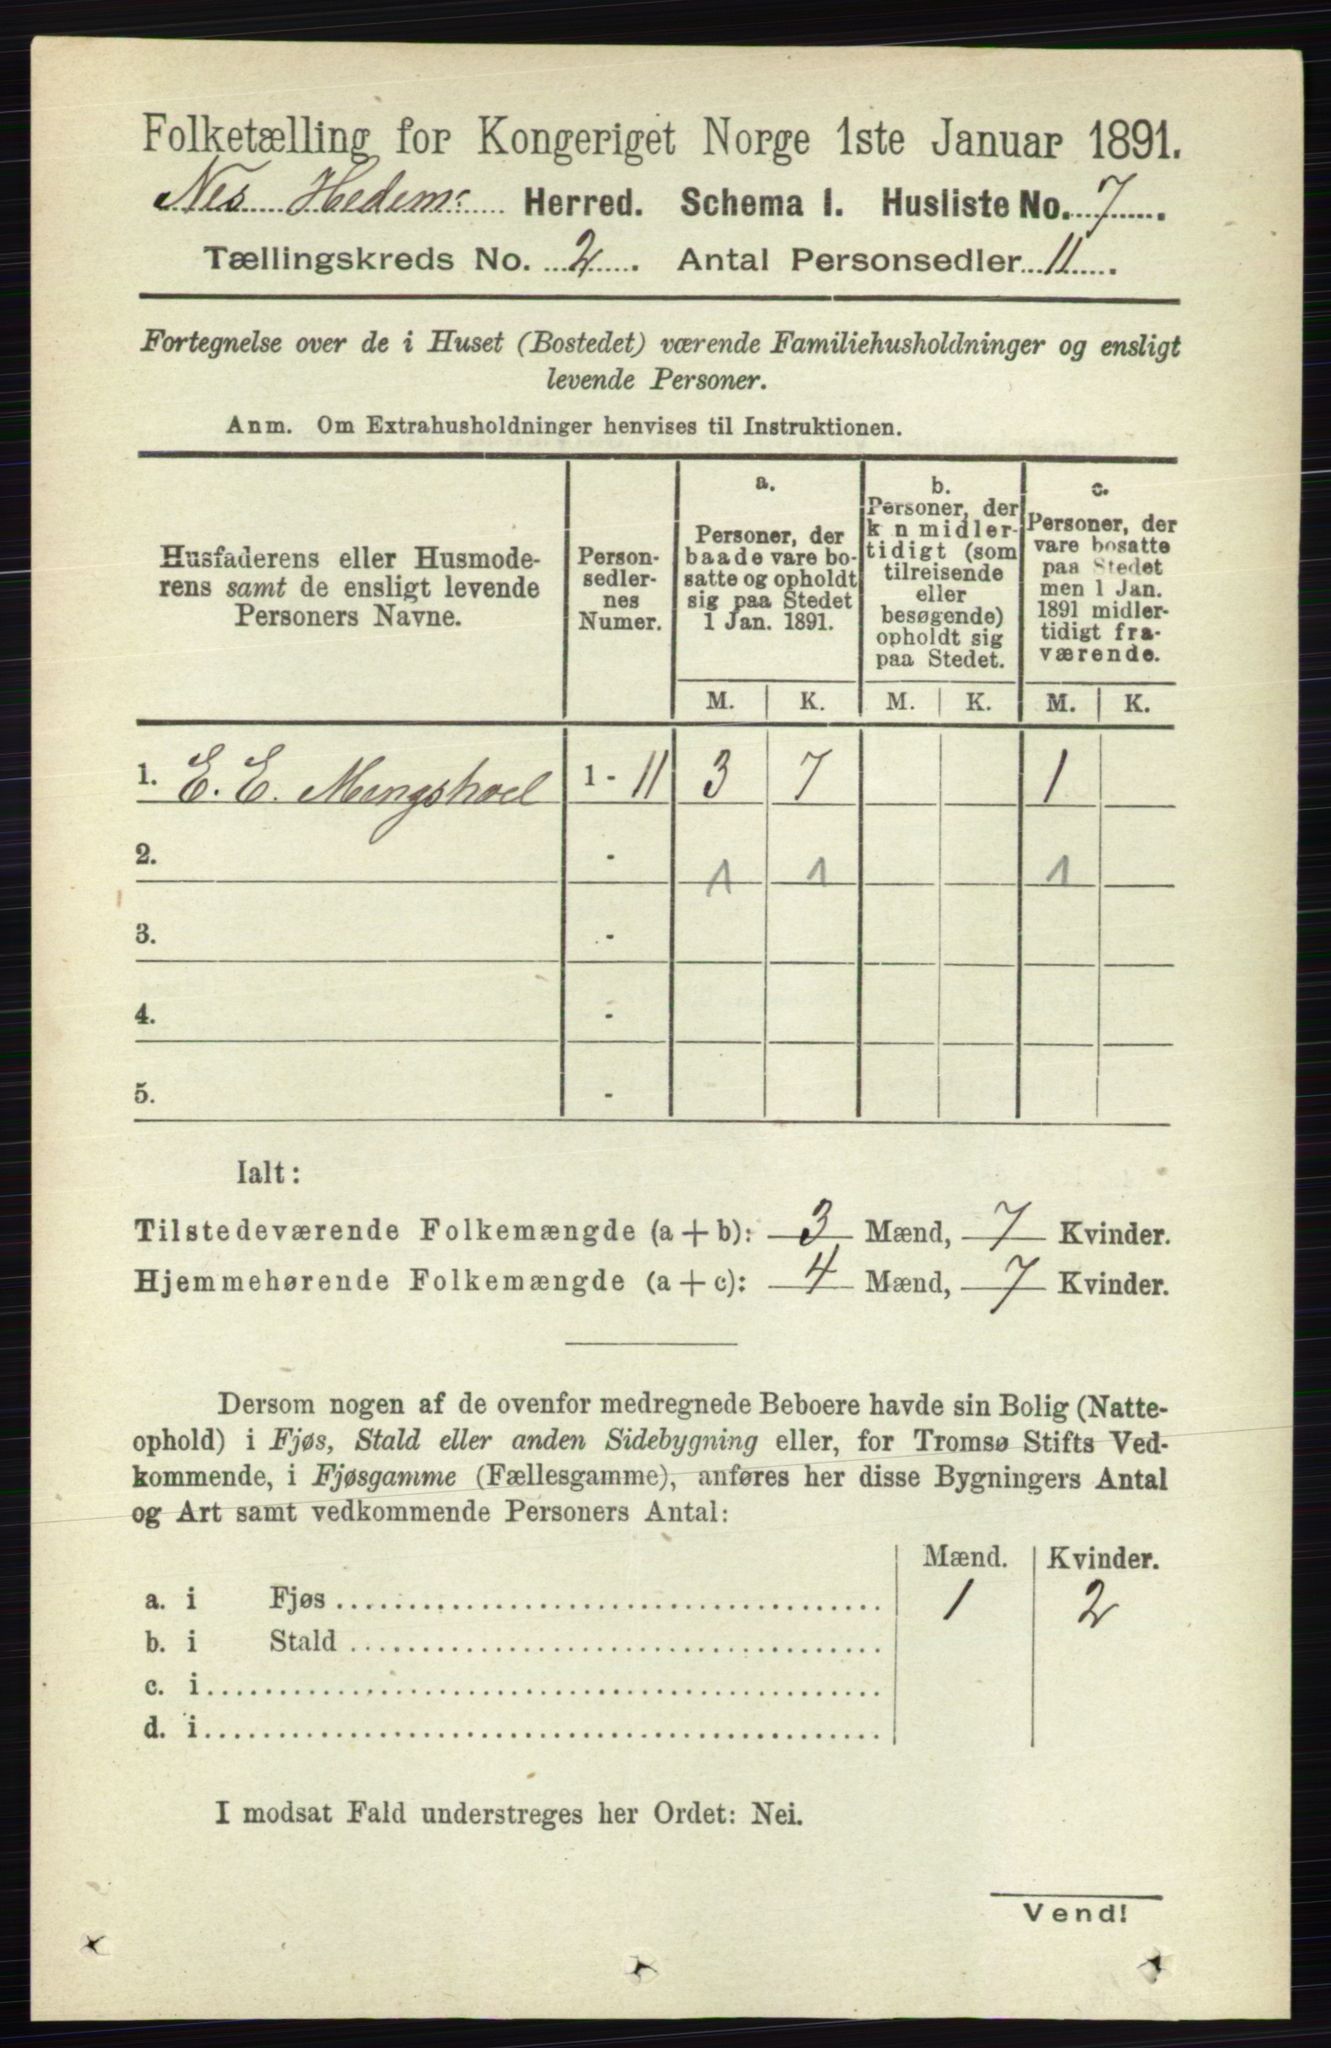 Folketælling for Kongeriget Norge 1ste Januar 1891.
Nes Hedem: Herred. Schema I. Husliste No. 7.
Tællingskreds No. 2. Antal Personsedler 11.
Fortegnelse over de i Huset (Bostedet) værende Familiehusholdninger og ensligt
levende Personer.
Anm. Om Extrahusholdninger henvises til Instruktionen.
Husfaderens eller Husmode-
rens samt de ensligt levende
Personers Navne.
Person-
sedler-
nes
Numer.
a.
Personer, der
baade vare bo-
satte og opholdt
sig paa Stedet
1 Jan. 1891.
b.
Personer, der
k n midler-
tidigt (som
tilreisende
eller
besøgende)
opholdt sig
paa Stedet.
c.
Personer, der
vare bosatte
paa Stedet
men 1 Jan.
1891 midler-
tidigt fra-
værende.
M. K. M. K. M. K.
1. E. E. Mengshoel 1 - 11 3 7 1
2. - 1 1 1
3. -
4. -
5. -
Ialt:
Tilstedeværende Folkemængde (a + b): 3 Mænd, 7 Kvinder.
Hjemmehørende Folkemængde (a + c): 4 Mænd, 7 Kvinder.
Dersom nogen af de ovenfor medregnede Beboere havde sin Bolig (Natte-
ophold) i Fjøs, Stald eller anden Sidebygning eller, for Tromsø Stifts Ved-
kommende, i Fjøsgamme (Fællesgamme), anføres her disse Bygningers Antal
og Art samt vedkommende Personers Antal:
Mænd. Kvinder.
a. i Fjøs 1 2
b. i Stald
c. i
d. i
I modsat Fald understreges her Ordet: Nei.
Vend!